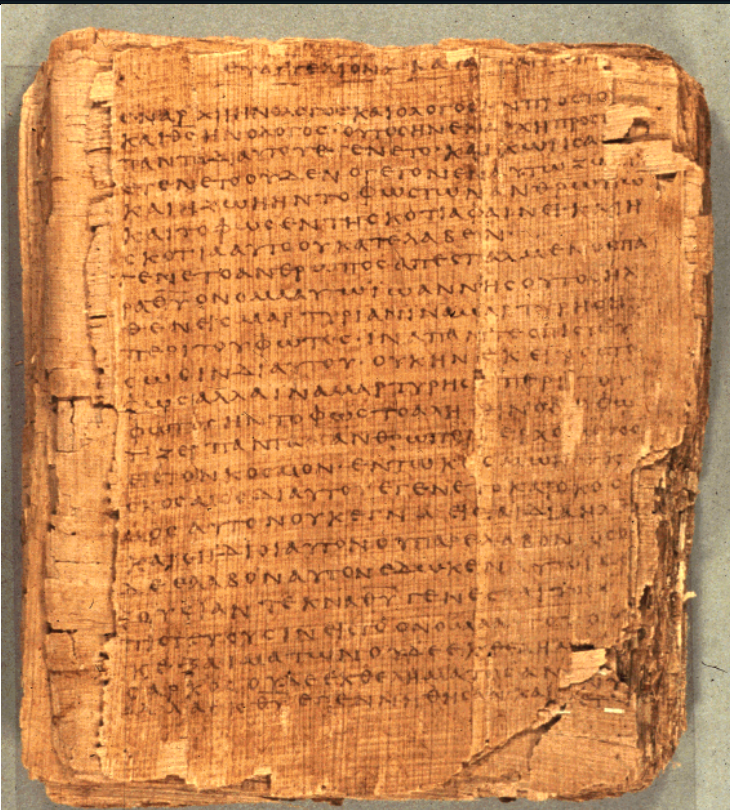 ΕΥΑΓΓΕΛΙΟΝ ΚΑΤΑ
ΕΝΑΡΧΗΗΝΟΛΟΓΟϹΚΑΙΟΛΟΓΟϹΗΝΠΡΟϹΤΟ
ΚΑΙΘϹΗΝΟΛΟΓΟϹ·ΟΥΤΟϹΗΝΕΝΑΡΧΗΠΡΟϹ
ΠΑΝΤΑΔΙΑΥΤΟΥΕΓΕΝΕΤΟ·ΚΑΙΧΩΡΙϹΑ
ΕΓΕΝΕΤΟΟΥΔΕΝΟΓΕΓΟΝΕΝΕΝΑΥΤΩΖΩ
ΚΑΙΗΖΩΗΗΝΤΟΦΩϹΤΩΝΑΝΘΡΩΠΩ
ΚΑΙΤΟΦΩϹΕΝΤΗϹΚΟΤΙΑΦΑΙΝΕΙ·ΚΑΙΗ
ϹΚΟΤΙΑΑΥΤΟΟΥΚΑΤΕΛΑΒΕΝ·
ΓΕΝΕΤΟΑΝΘΡΩΠΟϹΑΠΕϹΤΑΛΜΕΝΟϹΠΑ
ΡΑΘΥΟΝΟΜΑΑΥΤΩΙΩΑΝΝΗϹΟΥΤΟϹΗΛ
ΘΕΝΕΙϹΜΑΡΤΥΡΙΑΝΙΝΑΜΑΡΤΥΡΗϹΗ
ΠΕΡΙΤΟΥΦΩΤΟϹ·ΙΝΑΠΑΝΤΕϹΠΙϹΤΕΥ
ϹΩϹΙΝΔΙΑΥΤΟΥ·ΟΥΚΗΝΕΚΕΙΝΟϹΤΟ
ΦΩϹΑΛΛΑΙΝΑΜΑΡΤΥΡΗϹΗΠΕΡΙΤΟΥ
ΦΩΤΟϹΗΝΤΟΦΩϹΤΟΑΛΗΘΙΝΟΝΟΦΩ
ΤΙΖΕΙΠΑΝΤΑΑΝΘΡΩΠΟΝΕΡΧΟΜΕΝΟ
ΕΙϹΤΟΝΚΟϹΜΟΝ·ΕΝΤΩΚΟϹΜΩΗΝ
ΟΚΟϹΜΟϹΔΙΑΥΤΟΥΕΓΕΝΕΤΟΚΑΙΟΚΟϹ
ΜΟϹΑΥΤΟΝΟΥΚΕΓΝΩΕΙϹΤΑΙΔΙΑΗΛ
ΚΑΙΟΙΙΔΙΟΙΑΥΤΟΝΟΥΠΑΡΕΛΑΒΟΝΟϹΟΙ
ΔΕΕΛΑΒΟΝΑΥΤΟΝΕΔΩΚΕΝΑΥΤΟΙϹΕ
ΞΟΥϹΙΑΝΤΕΚΝΑΘΥΓΕΝΕϹΘΑΙ
ΠΙϹΤΕΥΟΥϹΙΝΕΙϹΤΟΟΝΟΜΑ
ΚΕΞΑΙΜΑΤΩΝΟΥΔΕΕΚΘΕΛΗΜΑ
ϹΑΡΚΟϹΟΥΔΕΕΚΘΕΛΗΜΑΤΟϹΑΝ
ΑΛΛΑΕΚΘΥΕΓΕΝΝΗΘΗϹΑΝΚΑΙ